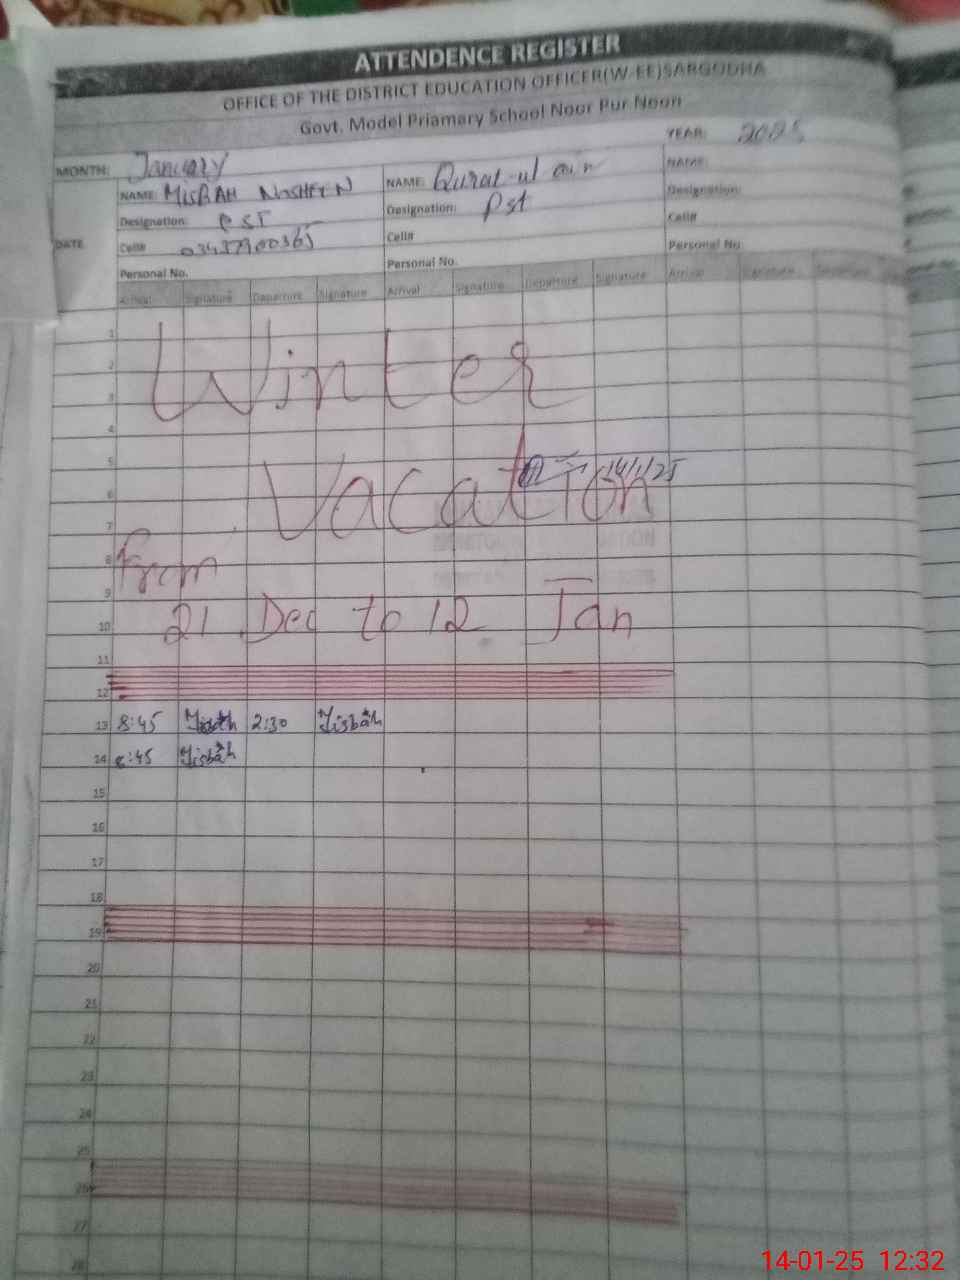 ATTENDENCE REGISTER
OFFICE OF THE DISTRICT EDUCATION OFFICER(W-EE)SARGODHA
Govt. Model Priamary School Noor Pur Noon
MONTH: January YEAR: 2025
DATE
NAME: MISBAH NOSHEEN NAME: Qurat-ul ain NAME:
Designation: PST Designation: Pst Designation:
Cell# 03437900365 Cell# Cell#
Personal No. Personal No. Personal No.
Arrival Signature Departure Signature Arrival Signature Departure Signature Arrival Signature
1
2
3
Winter
4
5
14/1/25
6
Vacation
7
8
From
9
10
21 Dec to 12 Jan
11
12
13 8:45 Misbah 2:30 Misbah
14 8:45 Misbah
15
16
17
18
19
20
21
22
23
24
25
26
27
28
14-01-25 12:32